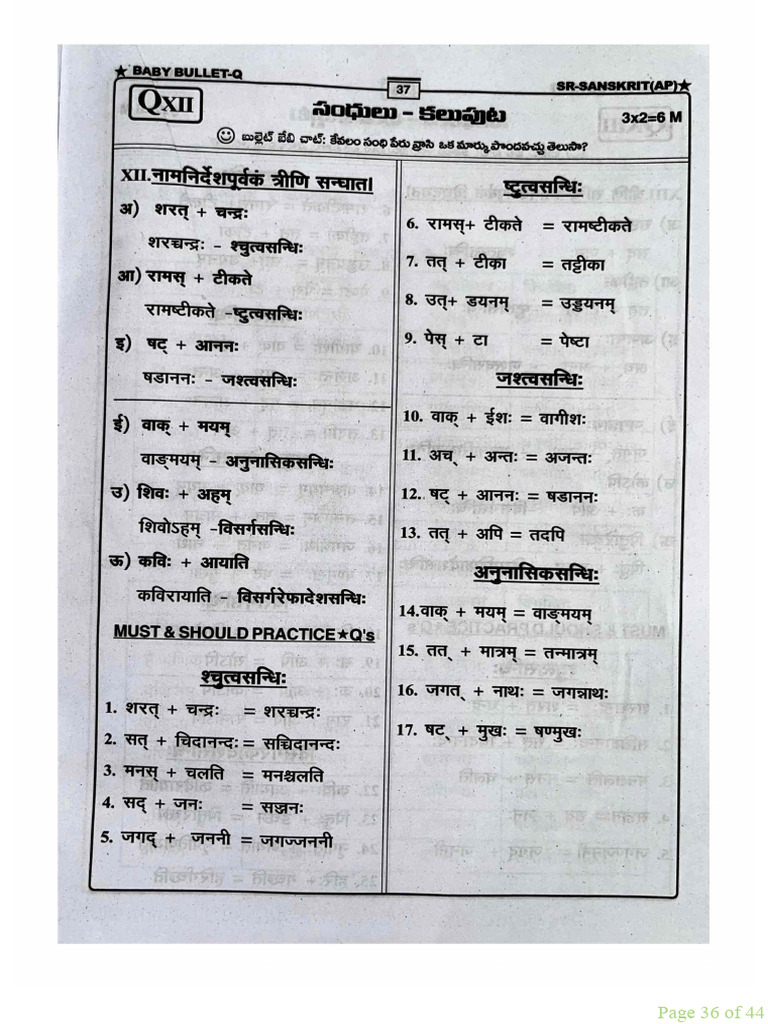 ★ BABY BULLET-Q
37
SR-SANSKRIT(AP)★
QXII
సంధులు - కలుపుట
3x2=6 M
బుల్లెట్ బేబి చాట్: కేవలం సంధి పేరు వ్రాసి ఒక మార్కు పొందవచ్చు తెలుసా?
XII.नामनिर्देशपूर्वकं त्रीणि सन्घात।
अ) शरत् + चन्द्रः
शरच्चन्द्रः - श्चुत्वसन्धिः
आ) रामस् + टीकते
रामष्टीकते -ष्टुत्वसन्धिः
इ) षट् + आननः
षडाननः - जश्त्वसन्धिः
ई) वाक् + मयम्
वाङ्मयम् - अनुनासिकसन्धिः
उ) शिवः + अहम्
शिवोऽहम् -विसर्गसन्धिः
ऊ) कविः + आयाति
कविरायाति - विसर्गरेफादेशसन्धिः
MUST & SHOULD PRACTICE★Q's
श्चुत्वसन्धिः
1. शरत् + चन्द्रः = शरच्चन्द्रः
2. सत् + चिदानन्दः= सच्चिदानन्दः
3. मनस् + चलति = मनश्चलति
4. सद् + जनः = सज्जनः
5. जगद् + जननी = जगज्जननी
ष्टुत्वसन्धिः
6. रामस्+ टीकते = रामष्टीकते
7. तत् + टीका = तट्टीका
8. उत्+ डयनम् = उड्डयनम्
9. पेस् + टा = पेष्टा
जश्त्वसन्धिः
10. वाक् + ईशः = वागीशः
11. अच् + अन्तः = अजन्तः
12. षट् + आननः = षडाननः
13. तत् + अपि = तदपि
अनुनासिकसन्धिः
14.वाक् + मयम् = वाङ्मयम्
15. तत् + मात्रम् = तन्मात्रम्
16. जगत् + नाथः = जगन्नाथः
17. षट् + मुखः = षण्मुखः
Page 36 of 44